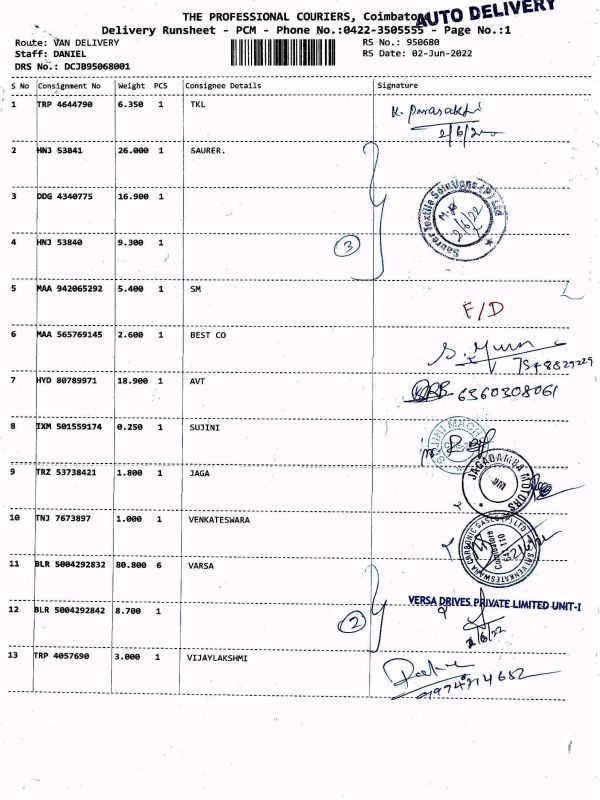 AUTO DELIVERY
THE PROFESSIONAL COURIERS, Coimbatore
Delivery Runsheet - PCM - Phone No.:0422-3505555 - Page No.:1
Route: VAN DELIVERY RS No.: 950680
Staff: DANIEL RS Date: 02-Jun-2022
DRS No.: DCJB95068001
S No Consignment No Weight PCS Consignee Details Signature
1 TRP 4644790 6.350 1 TKL
2 HNJ 53841 26.000 1 SAURER.
3 DDG 4340775 16.900 1
Saurer Textile Solutions (P) Ltd
2/6/22
4 HNJ 53840 9.300 1 3
5 MAA 942065292 5.400 1 SM
F/D
6 MAA 565769145 2.600 1 BEST CO
7 HYD 80789971 18.900 1 AVT
6360308061
8 IXM 501559174 0.250 1 SUJINI
9 TRZ 53738421 1.800 1 JAGA
JAGADAMBA MOTORS
10 TNJ 7673897 1.000 1 VENKATESWARA
SRI VENKATESWARA CARBONIC GASES (P) LTD
Coimbatore
641 110
11 BLR 5004292832 80.800 6 VARSA
VERSA DRIVES PRIVATE LIMITED UNIT-I
12 BLR 5004292842 8.700 1 2
2/6/22
13 TRP 4057690 3.000 1 VIJAYLAKSHMI